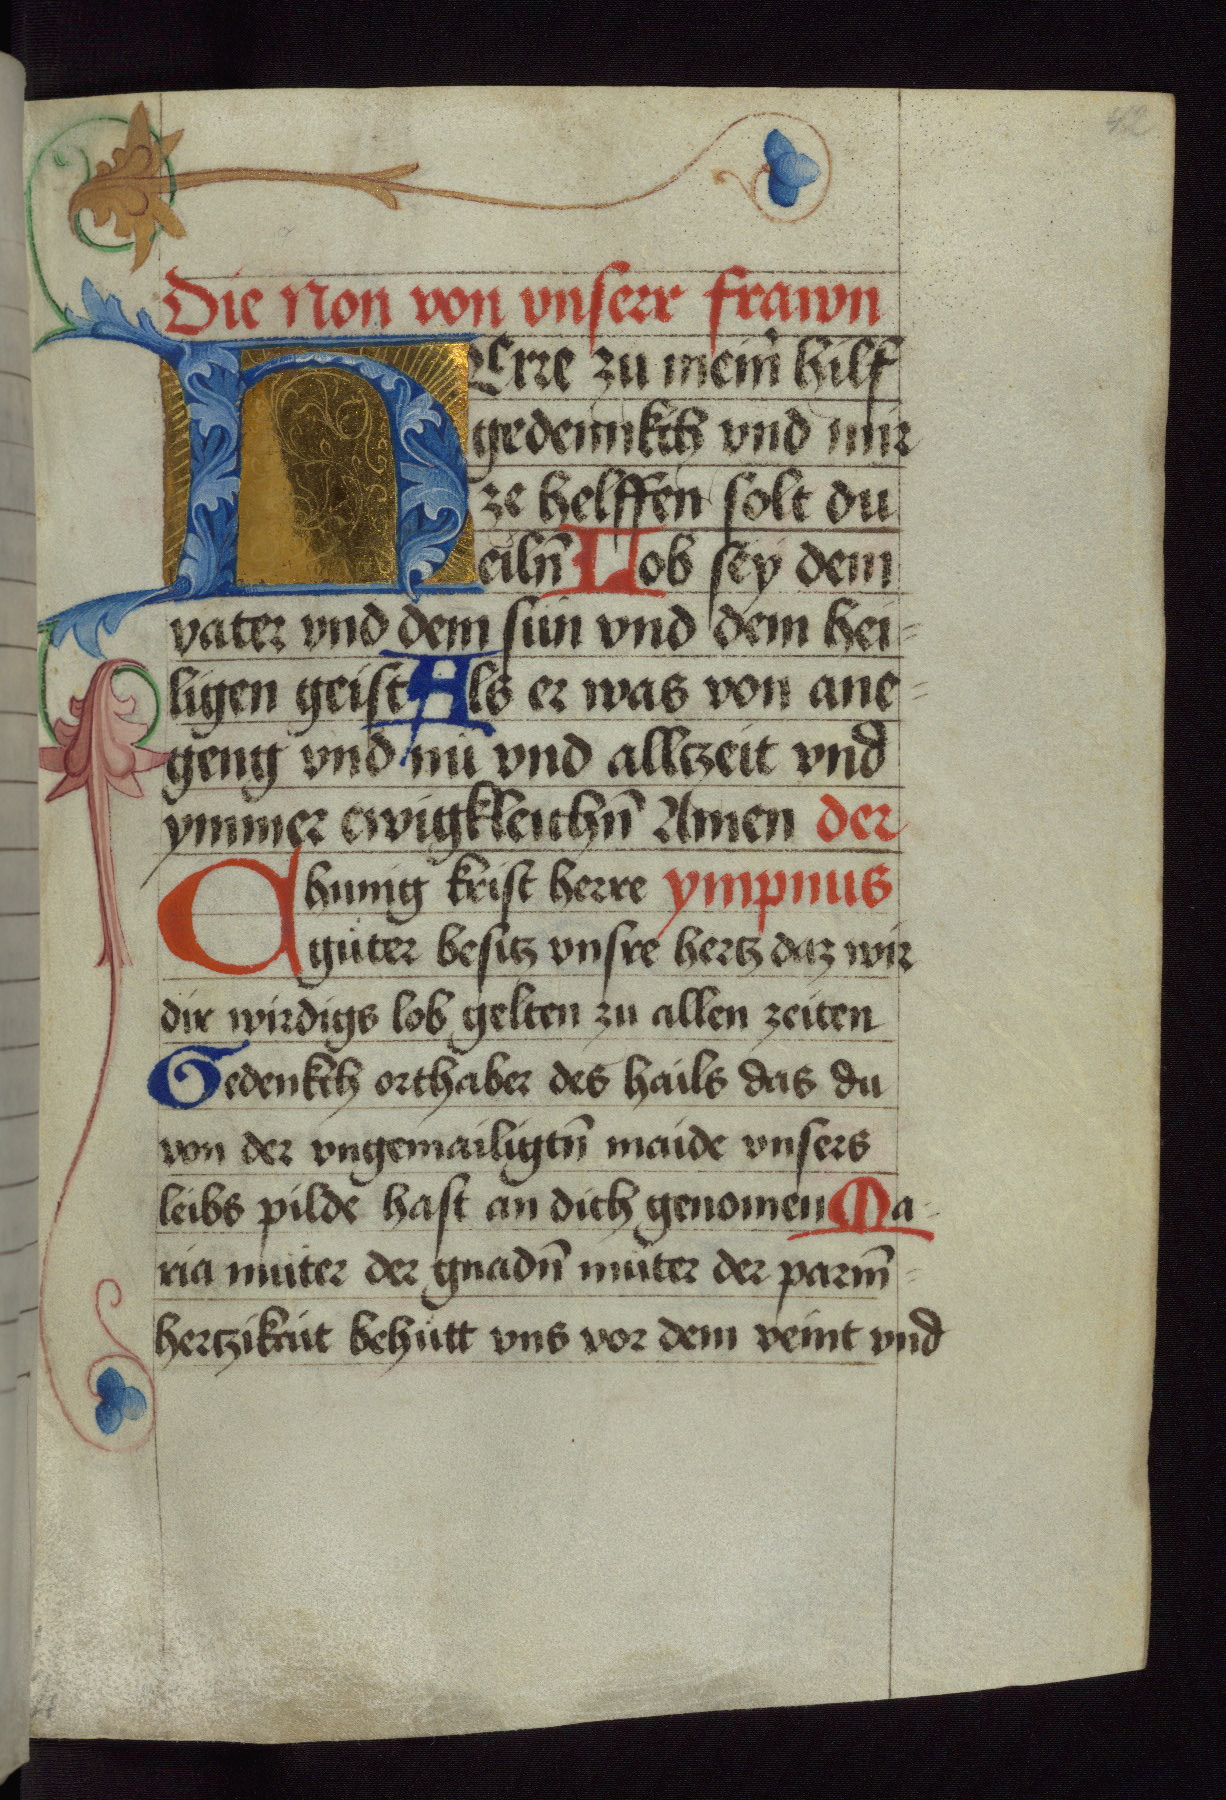 42
Die Non von vnserr frawn
HErre zu mein̄ hilf
gedennkch vnd mir
ze helffen solt du
eiln̄ Lob sey dem
vater vnd dem sün vnd dem hei=
ligen geist Als er was von ane=
geng vnd nu vnd alltzeit vnd
ymmer ewigkleichn̄ Amen der
Chunig krist herre ympnus
guter besitz vnsre hertz daz wir
dir wirdigs lob gelten zu allen zeiten
Gedenkch orthaber des hails das du
von der vngemailigtn̄ maide vnsers
leibs pilde hast an dich genomen Ma=
ria muter der gnadn̄ muter der parm̄=
hertzikait behutt vns vor dem veint vnd